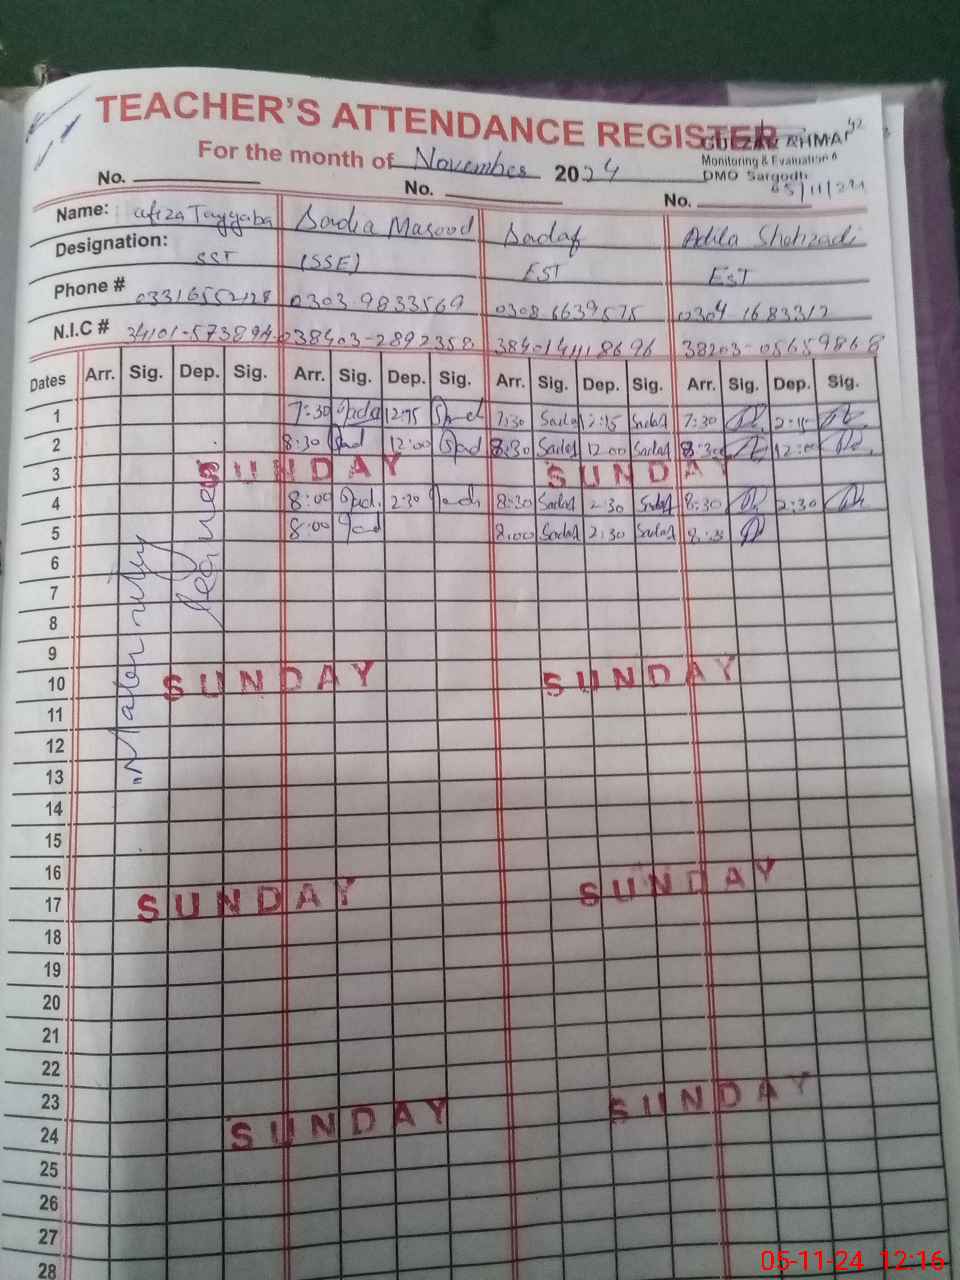 TEACHER'S ATTENDANCE REGISTER
GULZAR AHMA
Monitoring & Evaluation
DMO Sargodh
05/11/24
For the month of November 2024
No. No. No.
Name: afiza Tayyaba Sadia Masood Sadaf Adila Shahzadi
Designation: SST (SSE) EST EST
Phone # 0303-9833569 0308 6639575 0304-1683312
N.I.C # 34101-573894 38403-2892358 3840141118696 38203-0565986 8
Dates Arr. Sig. Dep. Sig. Arr. Sig. Dep. Sig. Arr. Sig. Dep. Sig. Arr. Sig. Dep. Sig.
1 7:30 12:15 7:30 Sadaf 12:15 Sadaf 7:30
2 8:30 12:00 8:30 Sadaf 12:00 Sadaf 8:30 12:00
3 SUNDAY SUNDAY
4 8:00 2:30 8:30 Sadaf 2:30 Sadaf 8:30 2:30
5 8:00 8:00 Sadaf 2:30 Sadaf
6
7
8
9
10 SUNDAY SUNDAY
11
12
13
14
15
16
17 SUNDAY SUNDAY
18
19
20
21
22
23
24 SUNDAY SUNDAY
25
26
27
28
05-11-24 12:16